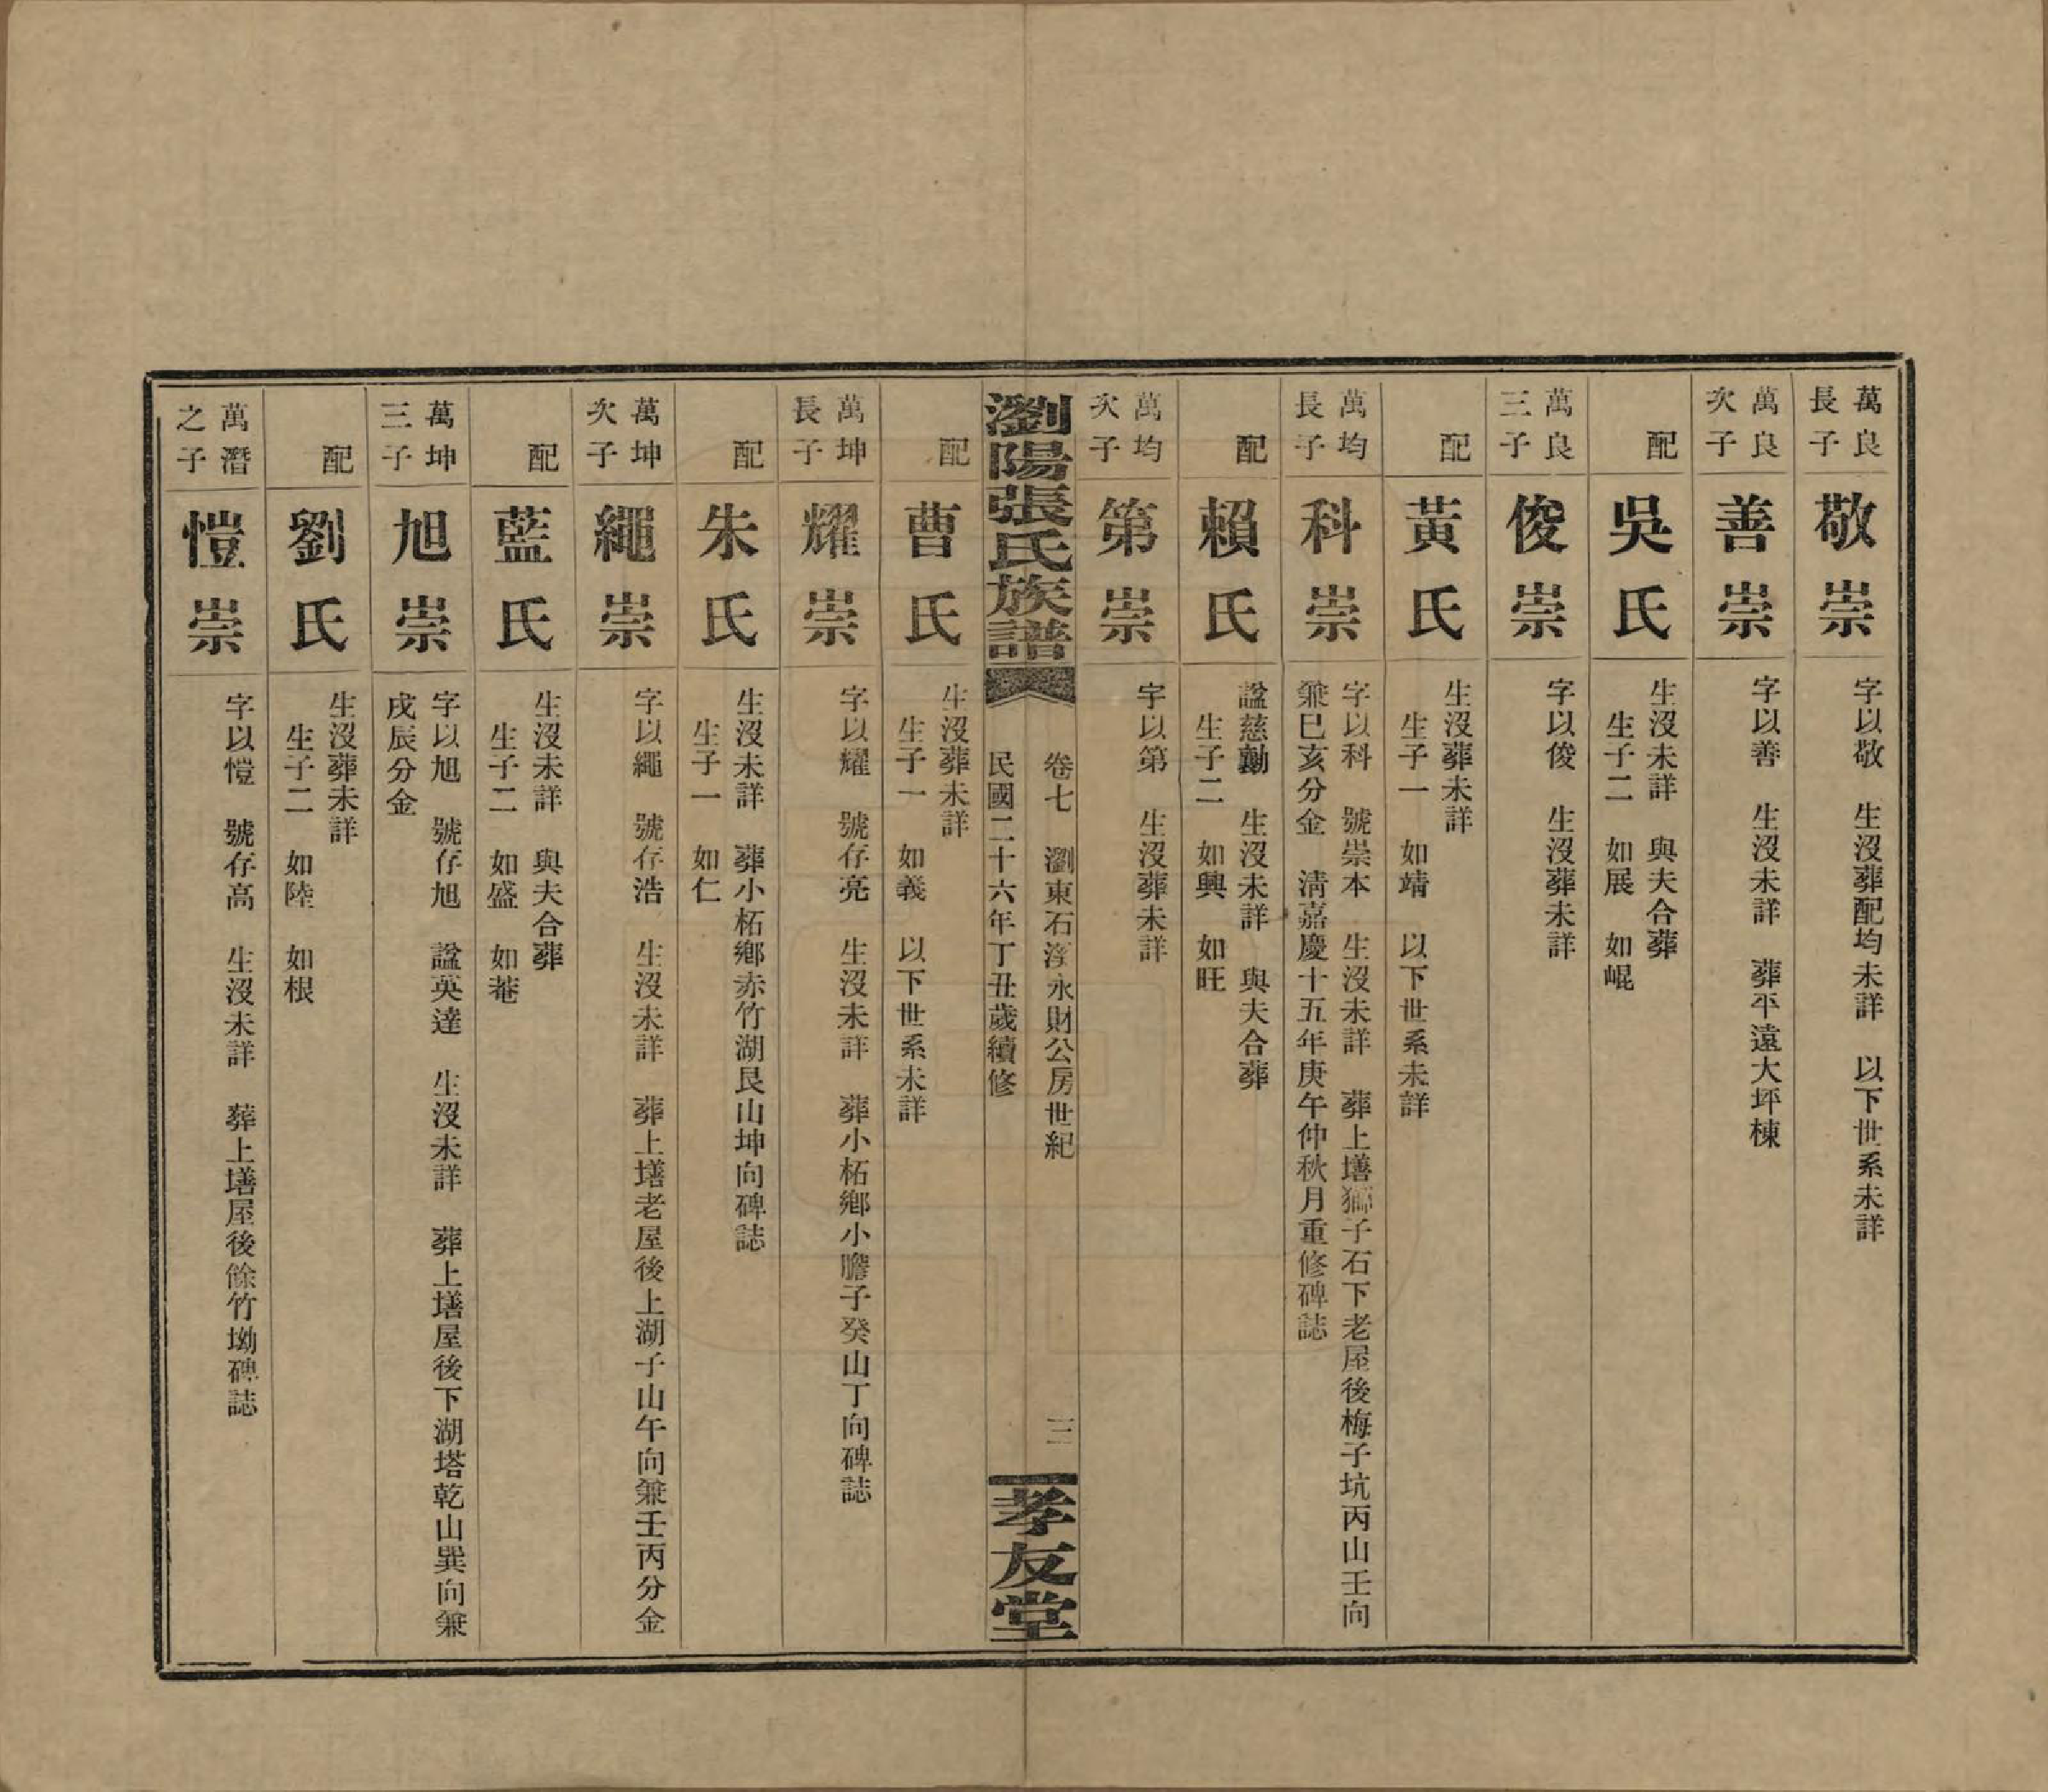 萬良
長子
敬崇
字以敬　生沒葬配均未詳　以下世系未詳
萬良
次子
善崇
字以善　生沒未詳　葬平遠大坪棟
配
吳氏
生沒未詳　與夫合葬
生子二　如展　如崐
萬良
三子
俊崇
字以俊　生沒葬未詳
配
黃氏
生沒葬未詳
生子一　如靖　以下世系未詳
萬均
長子
科崇
字以科　號崇本　生沒未詳　葬上墡獅子石下老屋後梅子坑丙山壬向
兼巳亥分金　清嘉慶十五年庚午仲秋月重修碑誌
配
賴氏
諡慈勷　生沒未詳　與夫合葬
生子二　如興　如旺
萬均
次子
第崇
字以第　生沒葬未詳
瀏陽張氏族譜
卷七　瀏東石溪永財公房世紀
三
民國二十六年丁丑歲續修
孝友堂
配
曹氏
生沒葬未詳
生子一　如義　以下世系未詳
萬坤
長子
耀崇
字以耀　號存亮　生沒未詳　葬小柘鄉小膽子癸山丁向碑誌
配
朱氏
生沒未詳　葬小柘鄉赤竹湖艮山坤向碑誌
生子一　如仁
萬坤
次子
繩崇
字以繩　號存浩　生沒未詳　葬上墡老屋後上湖子山午向兼壬丙分金
配
藍氏
生沒未詳　與夫合葬
生子二　如盛　如菴
萬坤
三子
旭崇
字以旭　號存旭　諡英達　生沒未詳　葬上墡屋後下湖塔乾山巽向兼
戌辰分金
配
劉氏
生沒葬未詳
生子二　如陸　如根
萬潛
之子
愷崇
字以愷　號存高　生沒未詳　葬上墡屋後餘竹坳碑誌